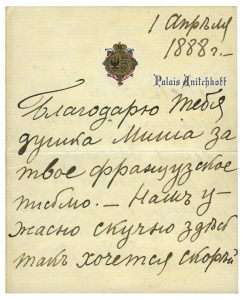 1 Апрѣля
1888 г. —
Palais Anitchkoff
Благодарю тебя
душка Миша за
твое французское
письмо. — Намъ у-
жасно скучно здѣсь
такъ хочется скорѣй